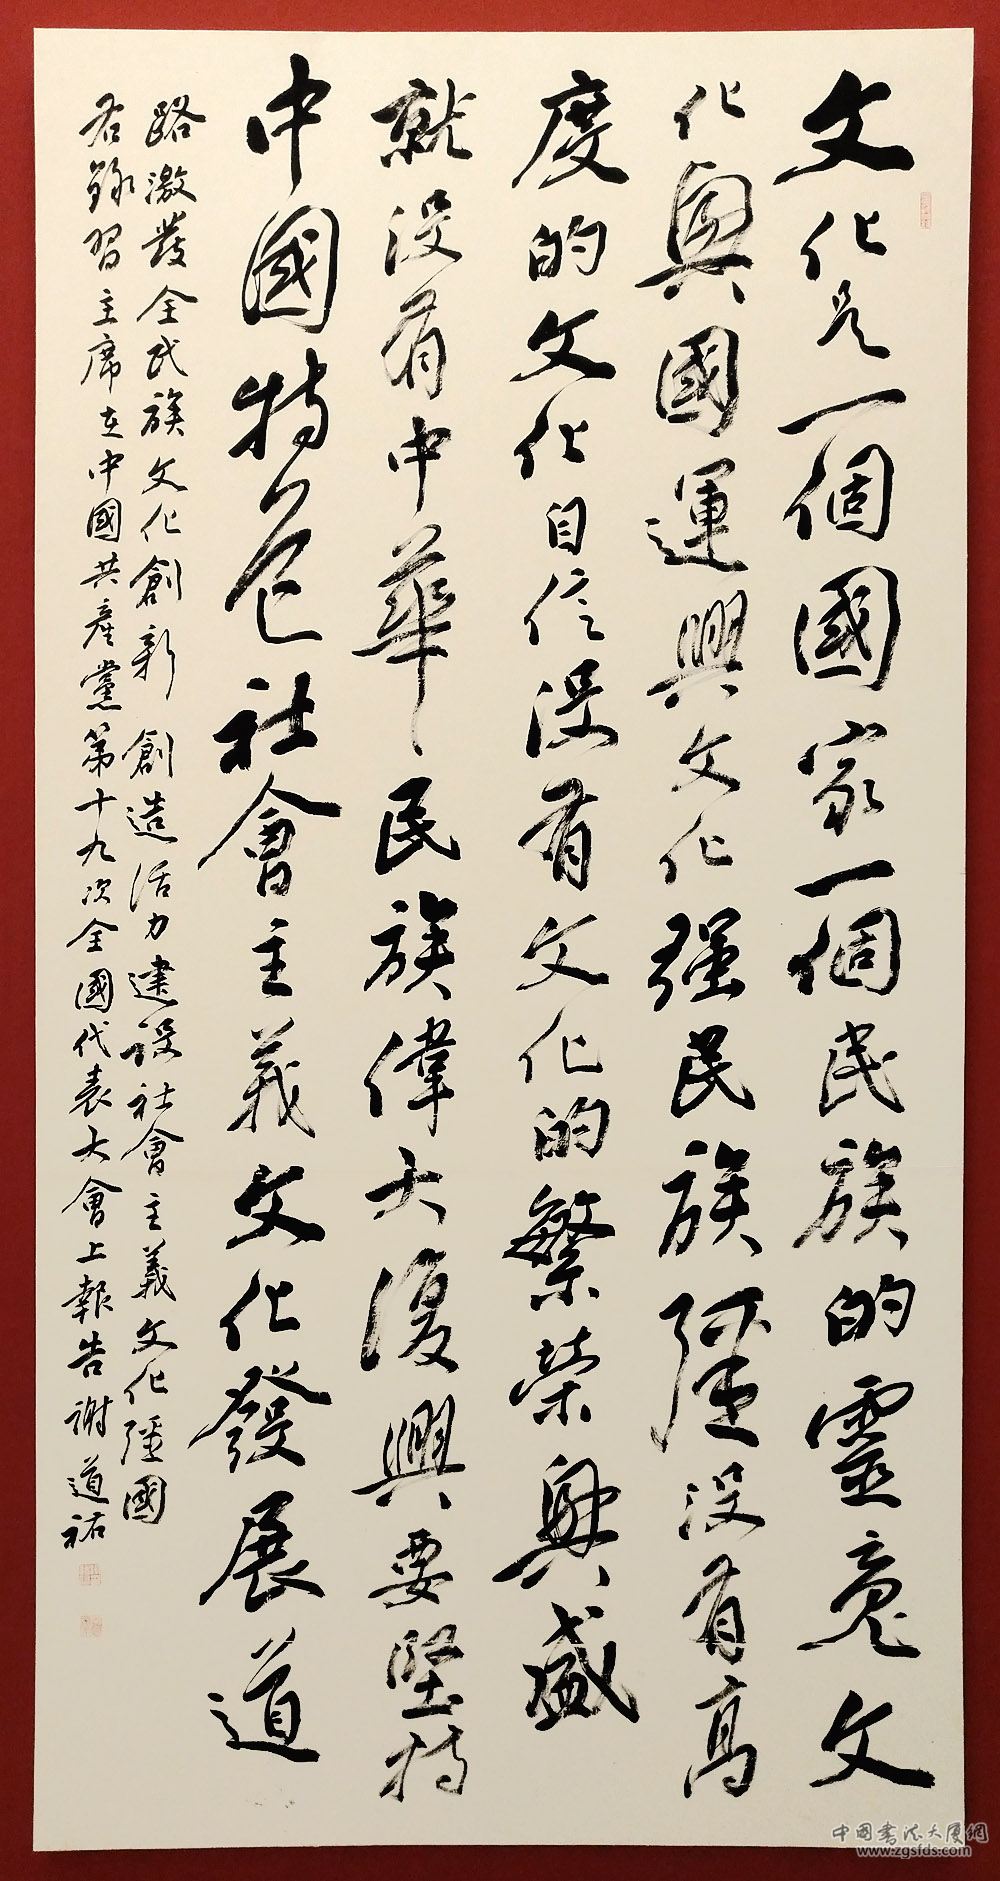 文化是一個國家一個民族的靈魂文
化興國運興文化强民族彊没有高
度的文化自信没有文化的繁榮興盛
就没有中華民族偉大復興要堅持
中國特色社會主義文化發展道
路激發全民族文化創新創造活力建設社會主義文化彊國
右錄習主席在中國共產黨第十九次全國代表大會上報告謝道祐
中国书法大厦網
www.zgsfds.com